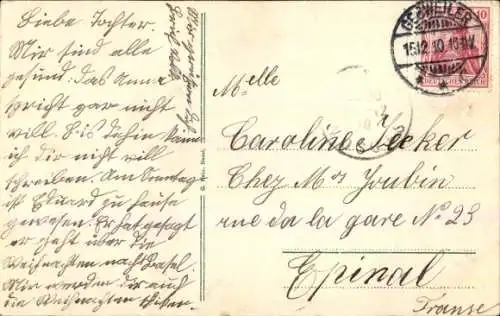 Liebe Tochter.
Mir sind alle
gesund. Das Anna
spricht gar nicht
will. Bis dahin kann
ich Dir nicht vill
schreiben. Am Sonntag
ist Eduard zu hause
gewesen. Er hat gesagt
er geht über die
Weihnachten nach Basel.
Mir werden dir auch
die Weihnachten
GEBWEILER
15.12.10
10
Melle
Caroline
Chez Mr Joubin
rue da la gare No 23
Epinal
Franse